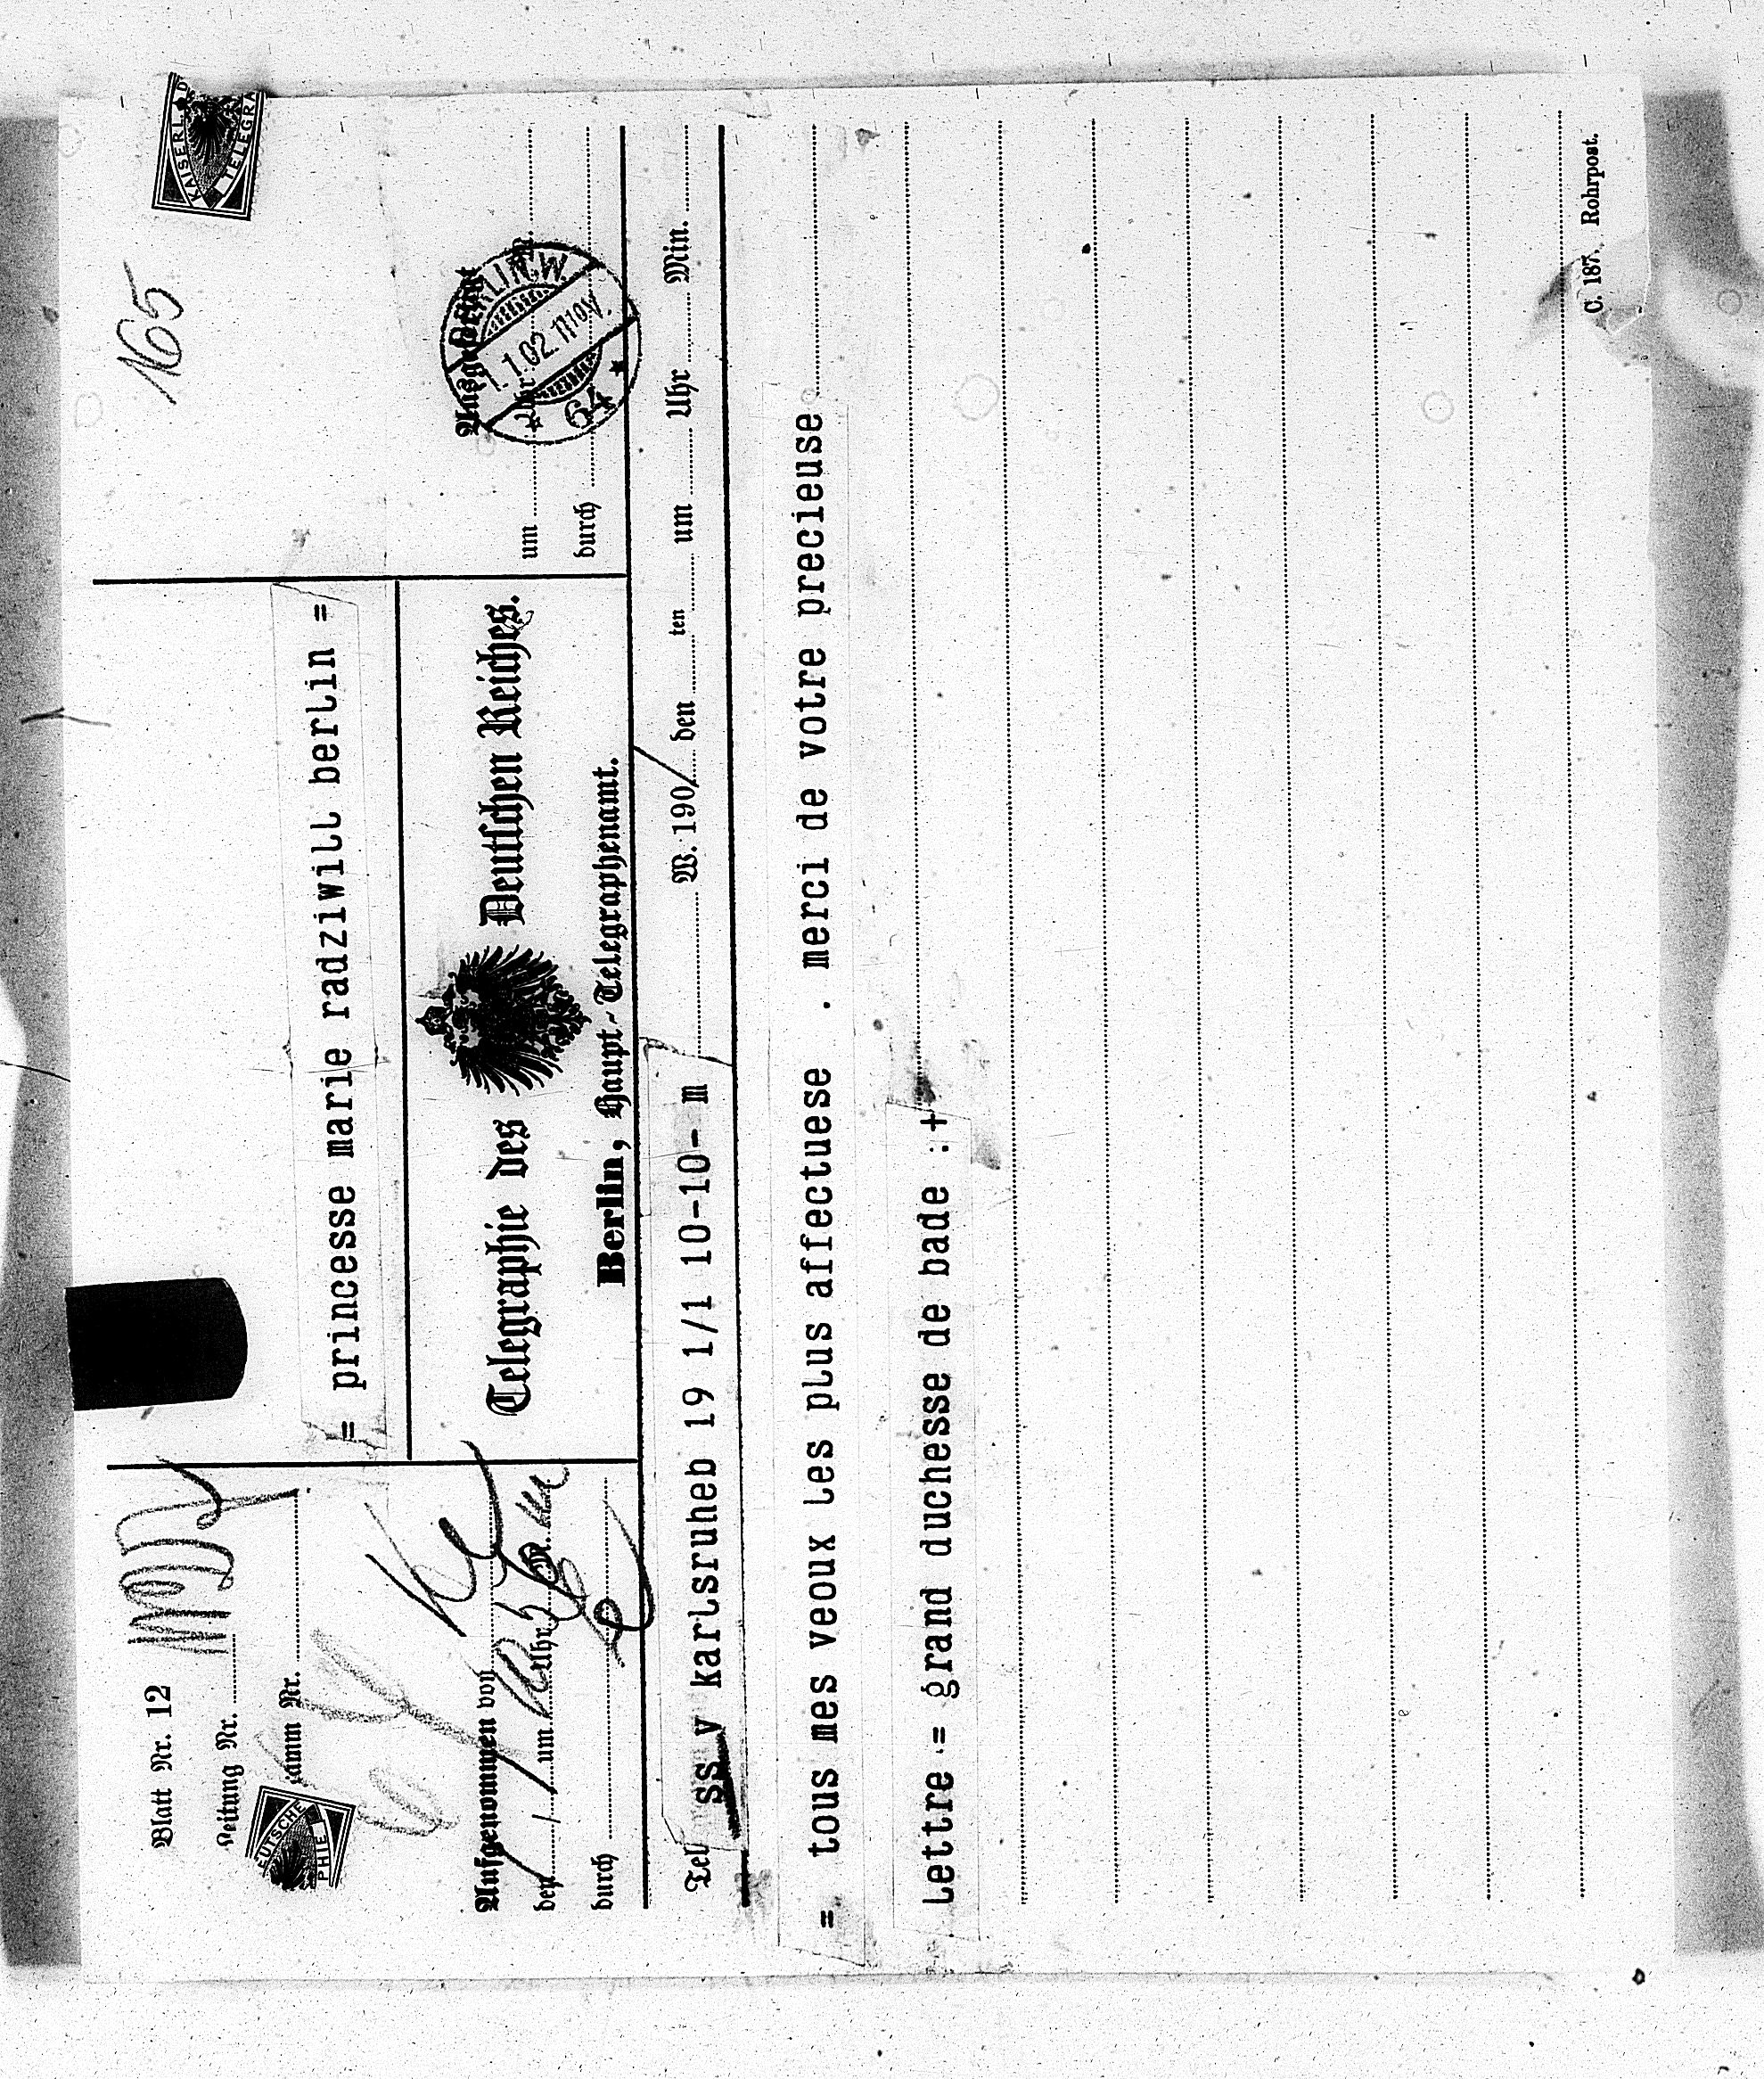 165
KAISERL. D
TELEGRA
Blatt Nr. 12
Leitung Nr.
= princesse marie radziwill berlin =
EUTSCHE
PHIE
Telegraphie des Deutschen Reiches.
Berlin, Haupt-Telegraphenamt.
Aufgenommen von
den 1/1 um Uhr
durch
BERLIN.W.
1.1.02.11 10V.
64
um Uhr
durch
Tel ss v karlsruheb 19 1/1 10-10- m W. 190 den ten um Uhr Min.
= tous mes veoux les plus affectuese . merci de votre precieuse
lettre = grand duchesse de bade :+
C. 187. Rohrpost.